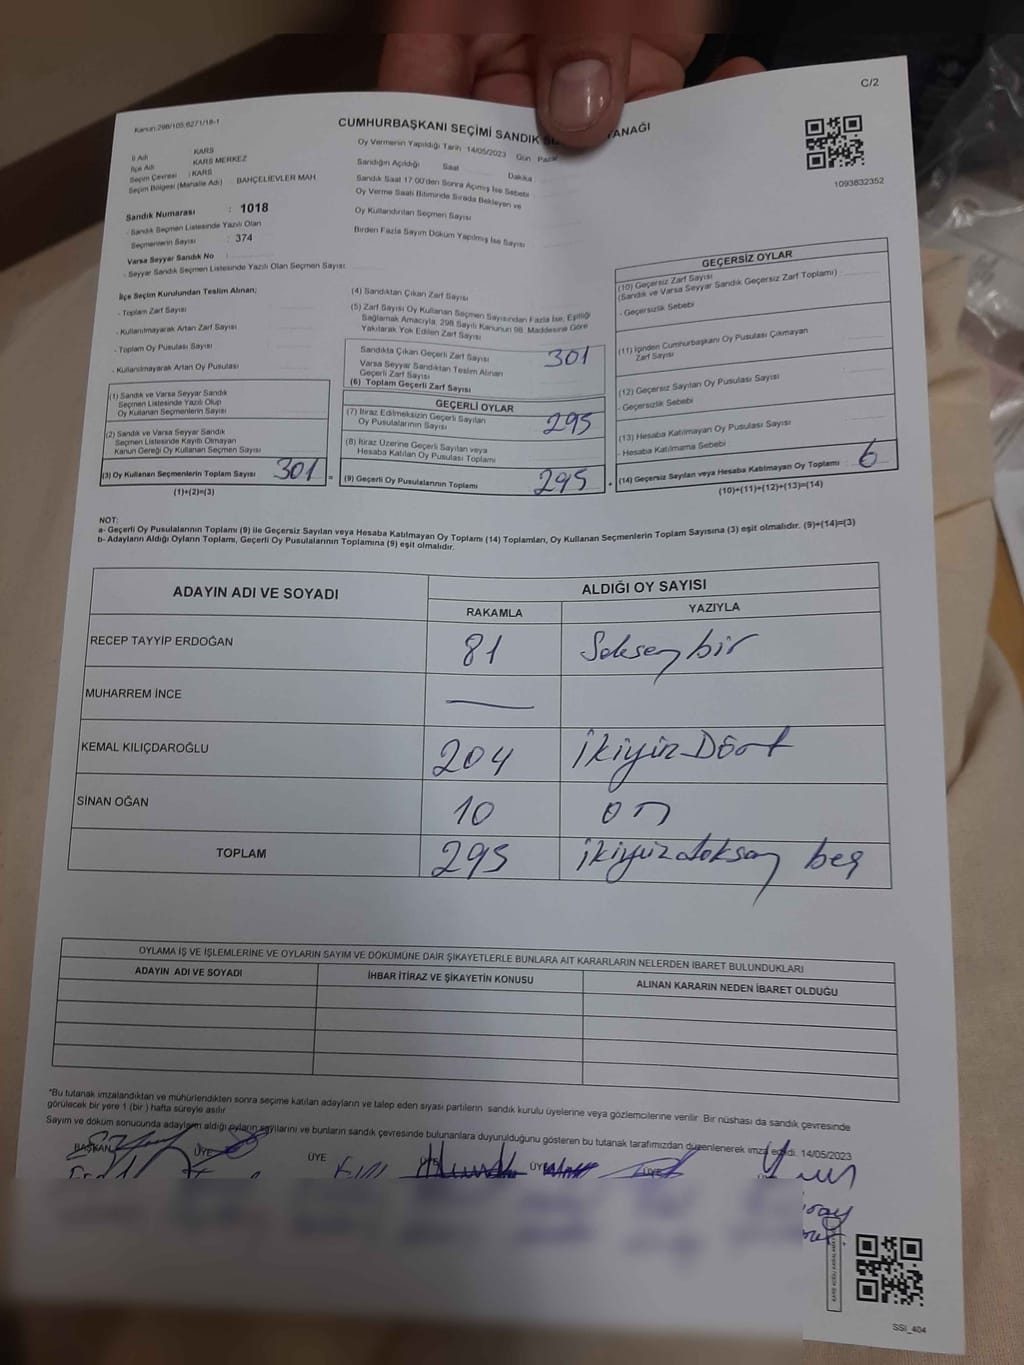 C/2
Kanun:298/105,6271/18-1
CUMHURBAŞKANI SEÇİMİ SANDIK
Oy Vermenin Yapıldığı Tarih 14/05/2023 Gün Pazar
1093832352
İl Adı : KARS
İlçe Adı : KARS MERKEZ
Seçim Çevresi : KARS
Seçim Bölgesi (Mahalle Adı) : BAHÇELİEVLER MAH
Sandığın Açıldığı Saat Dakika
Sandık Saat 17:00'den Sonra Açımış İse Sebebi
Oy Verme Saati Bitiminde Sırada Bekleyen ve
Oy Kullandırılan Seçmen Sayısı
Birden Fazla Sayım Döküm Yapılmış İse Sayısı
Sandık Numarası : 1018
- Sandık Seçmen Listesinde Yazılı Olan
Seçmenlerin Sayısı : 374
Varsa Seyyar Sandık No :
- Seyyar Sandık Seçmen Listesinde Yazılı Olan Seçmen Sayısı:
İlçe Seçim Kurulundan Teslim Alınan;
- Toplam Zarf Sayısı
- Kullanılmayarak Artan Zarf Sayısı
- Toplam Oy Pusulası Sayısı
- Kullanılmayarak Artan Oy Pusulası
(1) Sandık ve Varsa Seyyar Sandık
Seçmen Listesinde Yazılı Olup
Oy Kullanan Seçmenlerin Sayısı
(2) Sandık ve Varsa Seyyar Sandık
Seçmen Listesinde Kayıtlı Olmayan
Kanun Gereği Oy Kullanan Seçmen Sayısı
(3) Oy Kullanan Seçmenlerin Toplam Sayısı 301
(1)+(2)=(3)
(4) Sandıktan Çıkan Zarf Sayısı
(5) Zarf Sayısı Oy Kullanan Seçmen Sayısından Fazla İse, Eşitliği
Sağlamak Amacıyla, 298 Sayılı Kanunun 98. Maddesine Göre
Yakılarak Yok Edilen Zarf Sayısı
Sandıkta Çıkan Geçerli Zarf Sayısı 301
Varsa Seyyar Sandıktan Teslim Alınan
Geçerli Zarf Sayısı
(6) Toplam Geçerli Zarf Sayısı
GEÇERLİ OYLAR
(7) İtiraz Edilmeksizin Geçerli Sayılan
Oy Pusulalarının Sayısı 295
(8) İtiraz Üzerine Geçerli Sayılan veya
Hesaba Katılan Oy Pusulası Toplamı
= (9) Geçerli Oy Pusulalarının Toplamı 295
GEÇERSİZ OYLAR
(10) Geçersiz Zarf Sayısı
(Sandık ve Varsa Seyyar Sandık Geçersiz Zarf Toplamı)
- Geçersizlik Sebebi
(11) İçinden Cumhurbaşkanı Oy Pusulası Çıkmayan
Zarf Sayısı
(12) Geçersiz Sayılan Oy Pusulası Sayısı
- Geçersizlik Sebebi
(13) Hesaba Katılmayan Oy Pusulası Sayısı
- Hesaba Katılmama Sebebi
+ (14) Geçersiz Sayılan veya Hesaba Katılmayan Oy Toplamı 6
(10)+(11)+(12)+(13)=(14)
NOT:
a- Geçerli Oy Pusulalarının Toplamı (9) ile Geçersiz Sayılan veya Hesaba Katılmayan Oy Toplamı (14) Toplamları, Oy Kullanan Seçmenlerin Toplam Sayısına (3) eşit olmalıdır. (9)+(14)=(3)
b- Adayların Aldığı Oyların Toplamı, Geçerli Oy Pusulalarının Toplamına (9) eşit olmalıdır.
ADAYIN ADI VE SOYADI ALDIĞI OY SAYISI
RAKAMLA YAZIYLA
RECEP TAYYİP ERDOĞAN 81 Seksen bir
MUHARREM İNCE —
KEMAL KILIÇDAROĞLU 204 ikiyüz Dört
SİNAN OĞAN 10 on
TOPLAM 295 ikiyüzdoksan beş
OYLAMA İŞ VE İŞLEMLERİNE VE OYLARIN SAYIM VE DÖKÜMÜNE DAİR ŞİKAYETLERLE BUNLARA AİT KARARLARIN NELERDEN İBARET BULUNDUKLARI
ADAYIN ADI VE SOYADI İHBAR İTİRAZ VE ŞİKAYETİN KONUSU ALINAN KARARIN NEDEN İBARET OLDUĞU
*Bu tutanak imzalandıktan ve mühürlendikten sonra seçime katılan adayların ve talep eden siyasi partilerin sandık kurulu üyelerine veya gözlemcilerine verilir. Bir nüshası da sandık çevresinde
görülecek bir yere 1 (bir ) hafta süreyle asılır
Sayım ve döküm sonucunda adayların aldığı oyların sayılarını ve bunların sandık çevresinde bulunanlara duyurulduğunu gösteren bu tutanak tarafımızdan düzenlenerek imza edildi. 14/05/2023
BAŞKAN ÜYE ÜYE ÜYE ÜYE ÜYE
SSİ_404